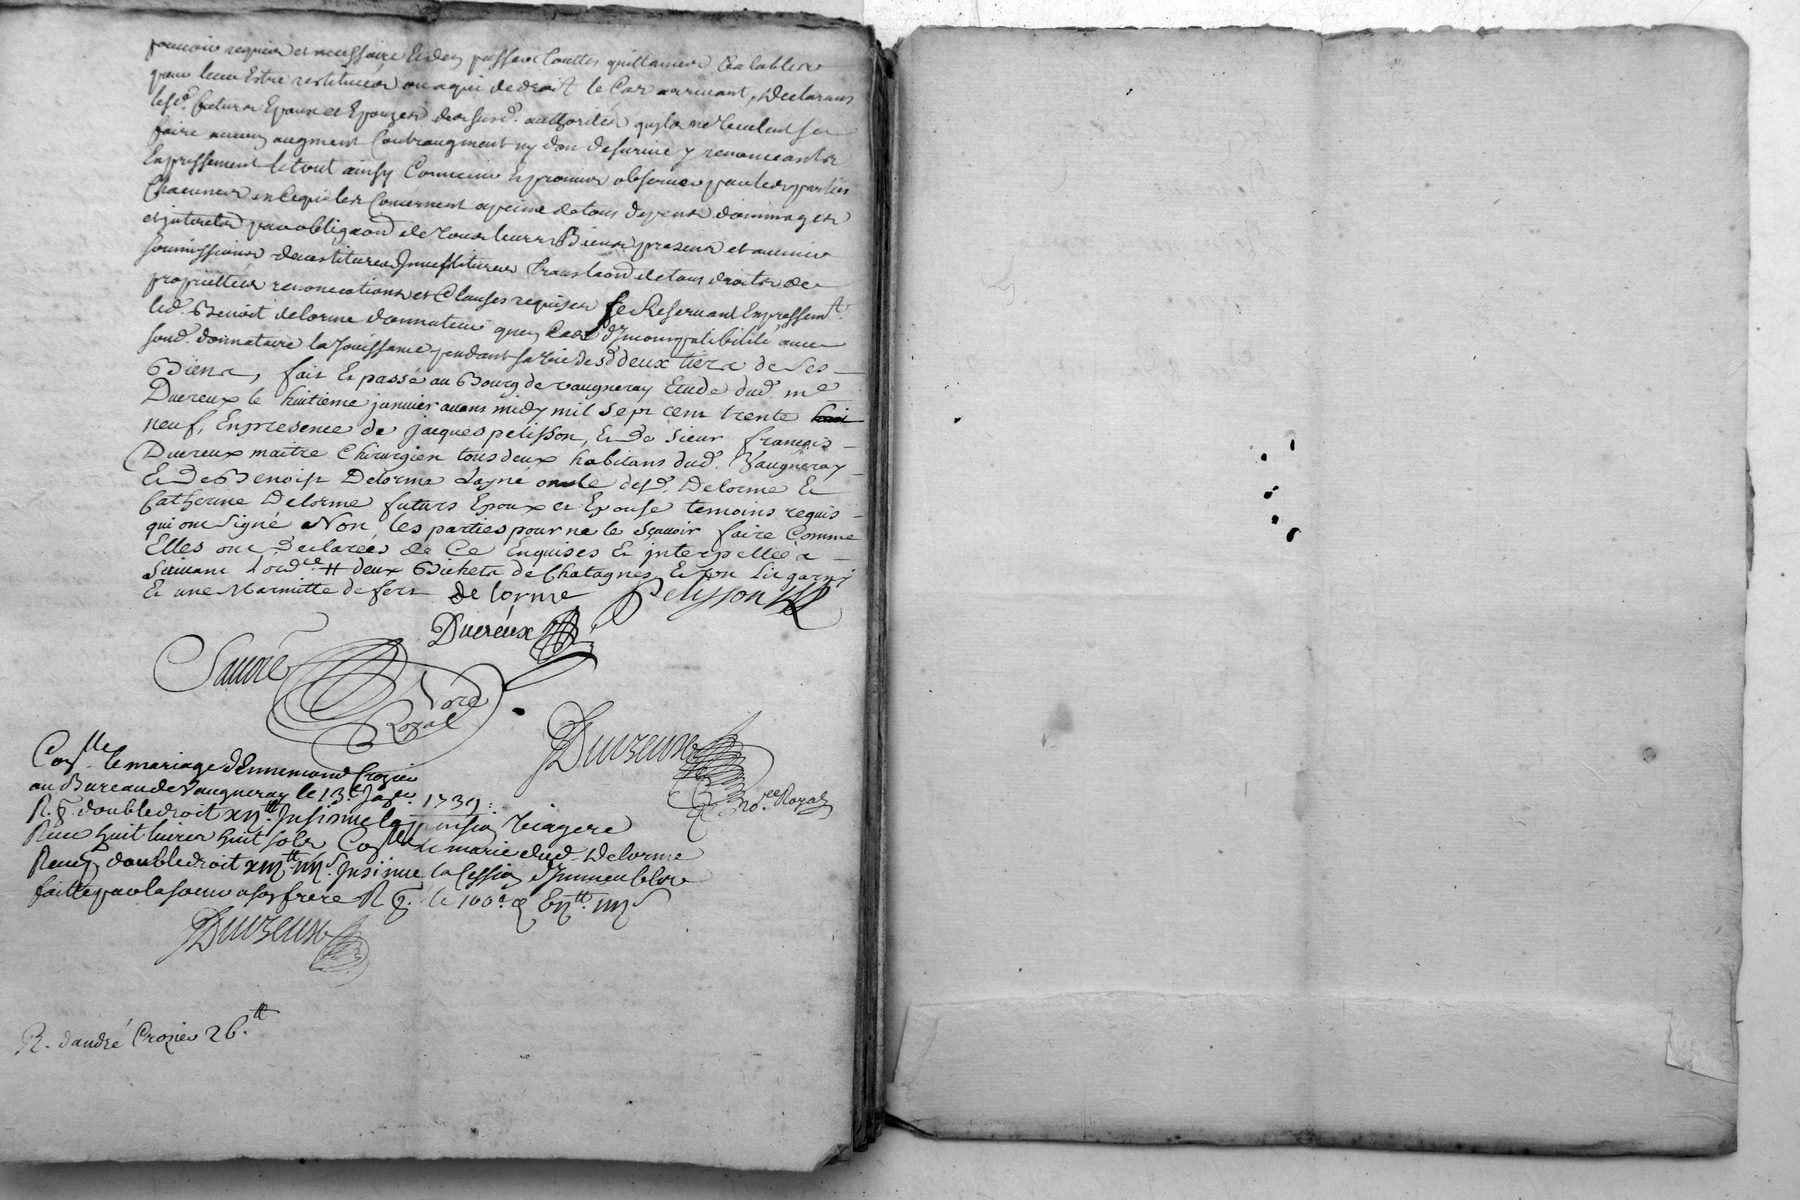 pouvoir requis et necessaire Et den passer touttes quittances vallables
pour leur Estre restitués ou a qui de droit le Cas arrivant, Declarans
lesd. futurs Epoux et Epouzes de susd. authorités quils ne veulent se
faire aucun augment Contraugment ny don de survie y renonceants
Expressement le tout ainsy Convenu Et promis observer par les parties
Chacunes en ce qui les Concernent a peine de tous depens dommages
et interets par obligaon de tous leurs Biens presens et avenir
soumissions devestitures Investitures translaon de tous droits de
proprietté renonciations et Clauses requises se Reservant Expressemt.
led. Benoit delorme donnateur quen Cas d'Incompatibilité avec
sond. donnataire la Jouissance pendant sa vie desd deux tiers de ses
Biens, fait Et passé au Bourg de vaugneray Etude dud. me
Ducreux le huitieme janvier avans midy mil sept cent trente
neuf, En presence de jacques pelisson, Et De sieur francois
Ducreux maitre Chirurgien tous deux habitans dud. Vaugneray
Et De Benoist Delorme Layné oncle desd. Delorme Et
Catherine Delorme futurs Epoux et Epouse temoins requis
qui ont signé Non les parties pour ne le Scavoir faire Comme
Elles ont Declarées de Ce Enquises Et interpellées
Suivant Lordce # deux Bichets de Chatagnes Et un Lit garni
Et une Marmitte de fert delorme Pelisson
Ducreux
Sauvré
Nore
Royal
Ducreux
Nore. Royal
Conlle. le mariage dEnnemond Crozier
au Bureau de Vaugneray le 13e. Janer. 1739:
R. g. double droit xij.tt Insinué la pension viagere
Receu huit livres huit sols Conlle le marie dud. Delorme
Receu double droit Insinué la Cession d'Immeubles
faitte par la soeur a son frere R g. le 100e.
Ducreux
R. dandré Crozier 26.tt